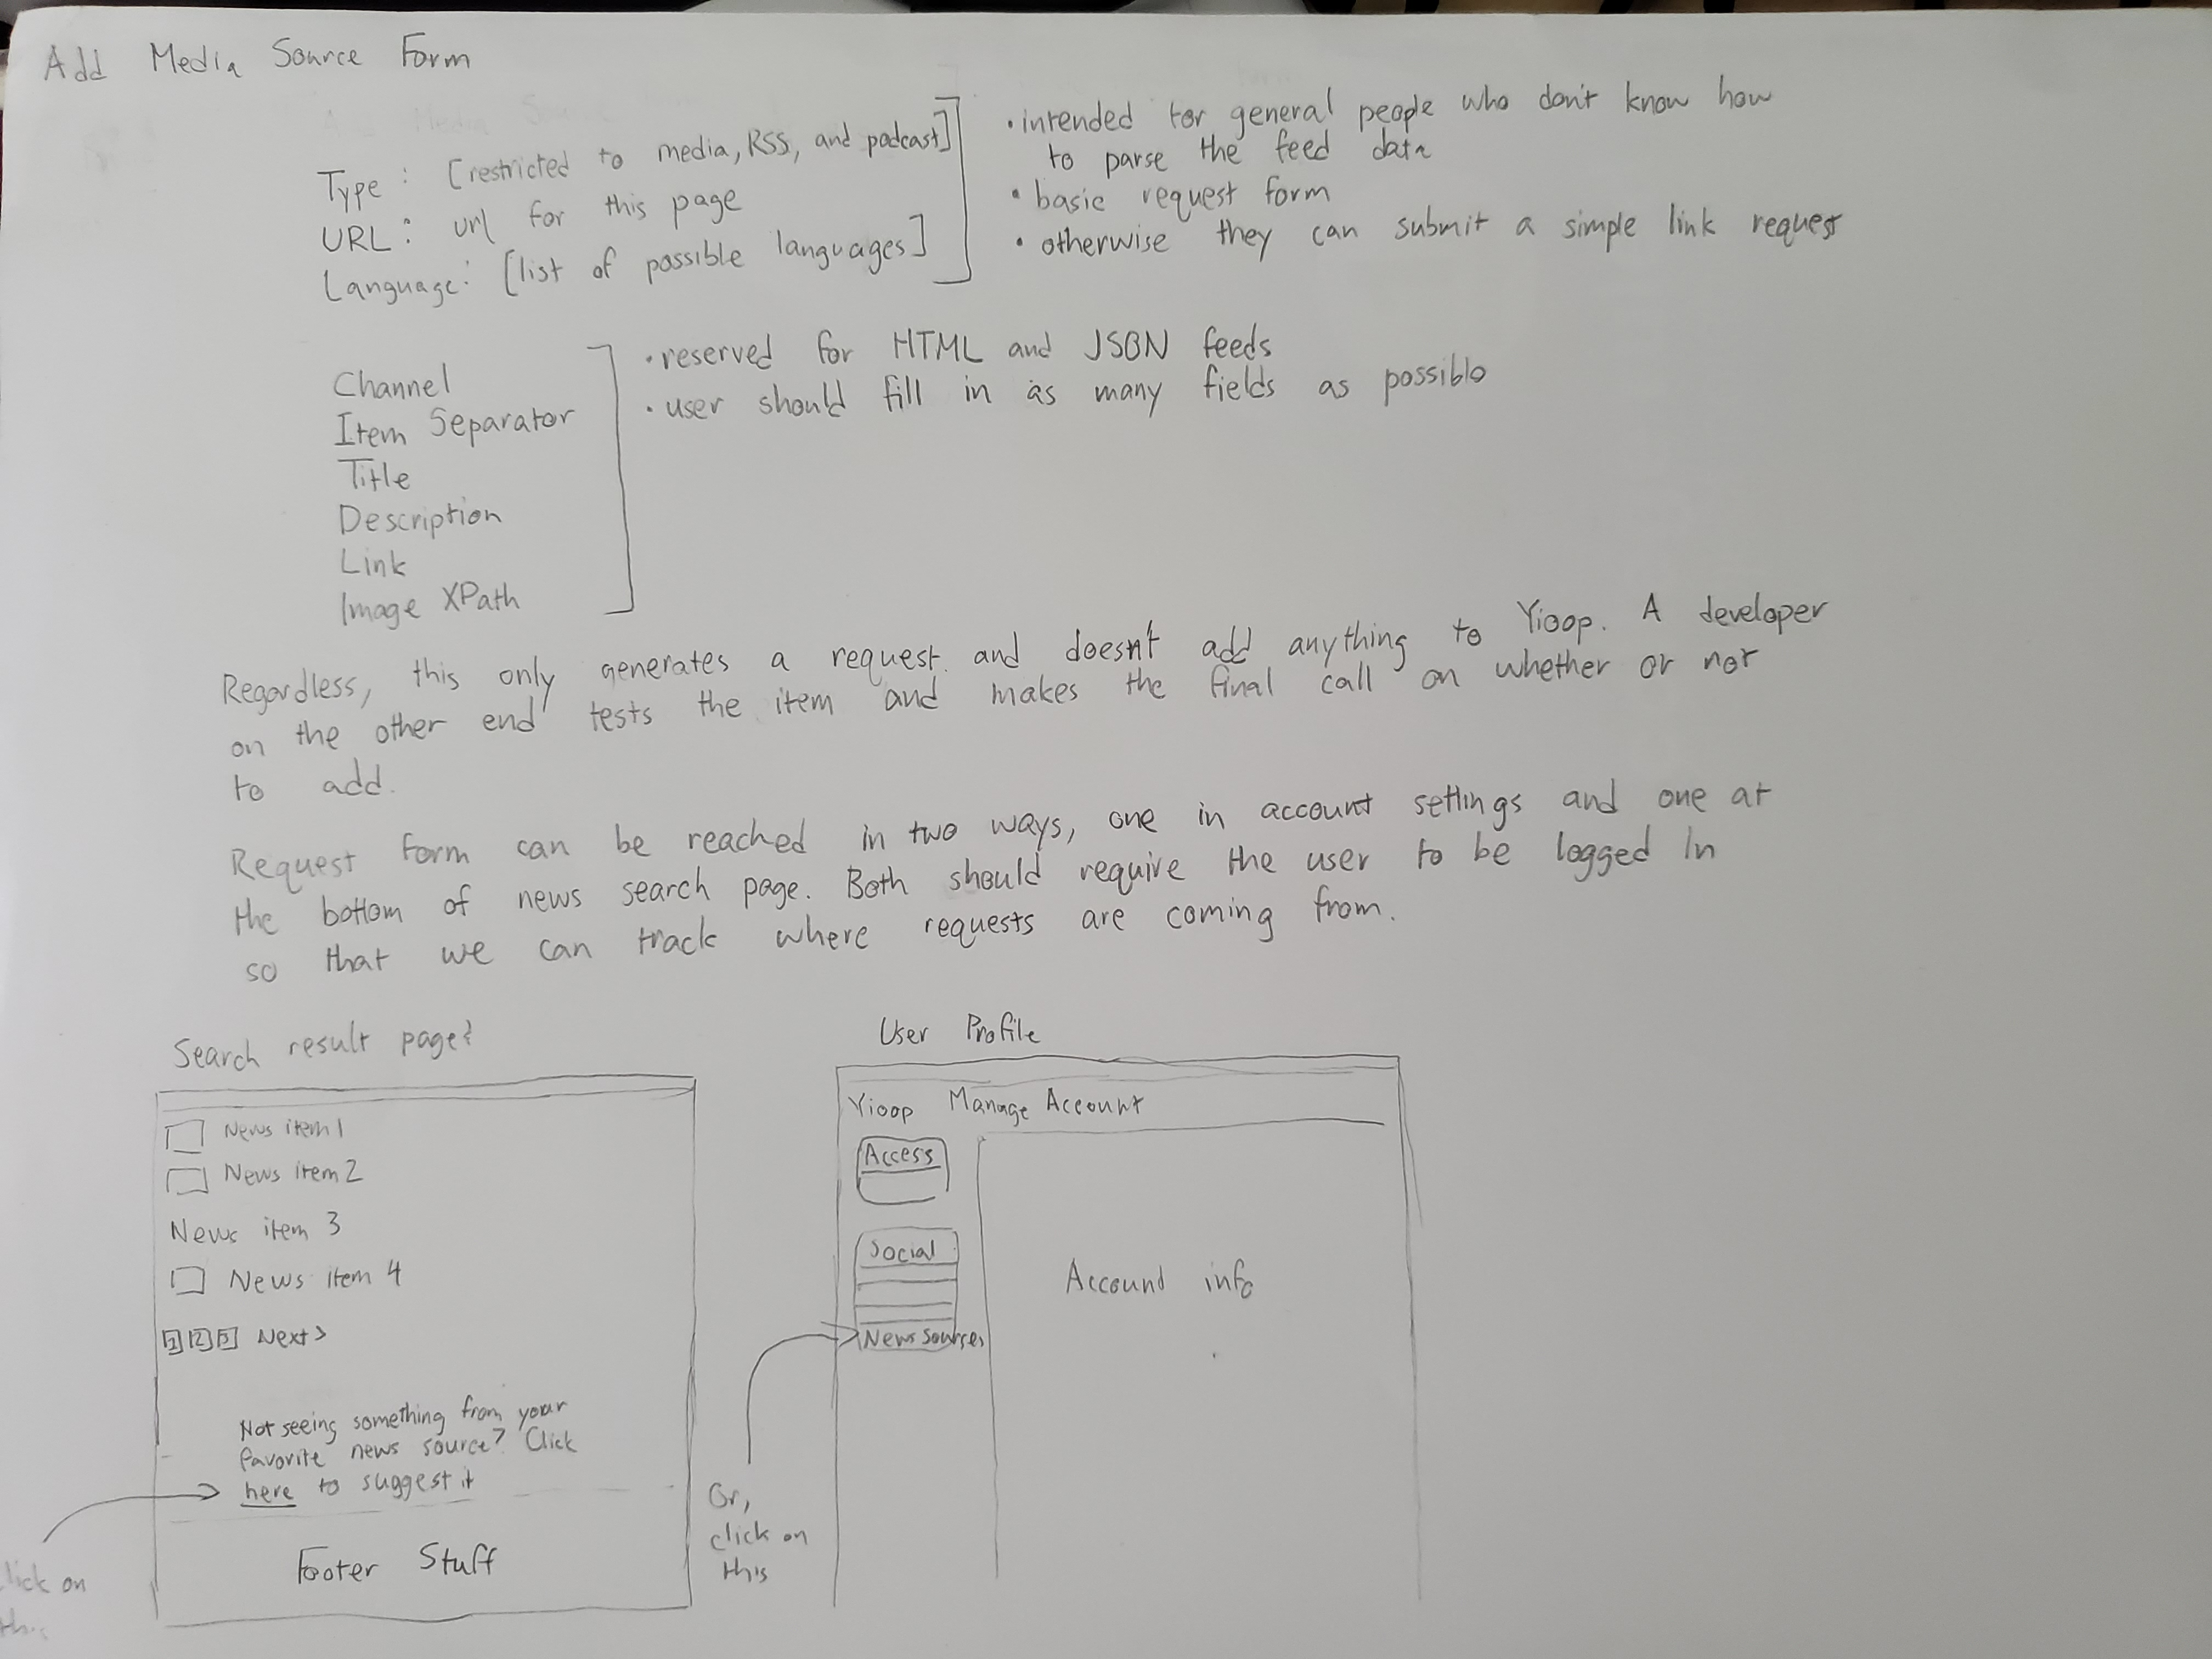 Add Media Source Form
Type : [restricted to media, RSS, and podcast]
URL : url for this page
Language: [list of possible languages]
• intended for general people who don't know how
to parse the feed data
• basic request form
• otherwise they can submit a simple link request
Channel
Item Separator
Title
Description
Link
Image XPath
• reserved for HTML and JSON feeds
• user should fill in as many fields as possible
Regardless, this only generates a request and doesn't add anything to Yioop. A developer
on the other end tests the item and makes the final call on whether or not
to add.
Request form can be reached in two ways, one in account settings and one at
the bottom of news search page. Both should require the user to be logged in
so that we can track where requests are coming from.
Search result page:
News item 1
News item 2
News item 3
News item 4
1 2 3 Next >
Not seeing something from your
favorite news source? Click
here to suggest it
Footer Stuff
lick on
this
User Profile
Yioop Manage Account
Access
Social
News Sources
Account info
Or,
click on
this